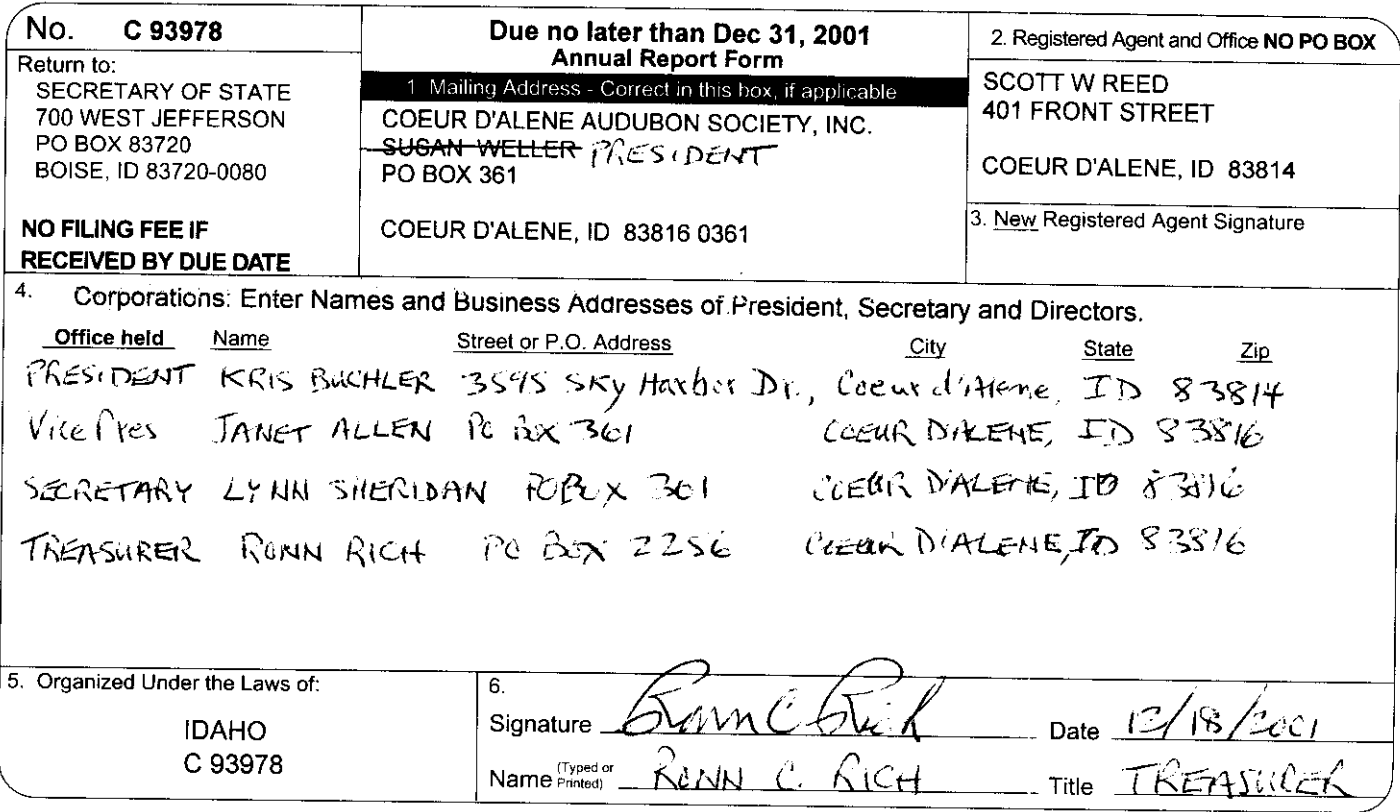 No. C 93978
Return to:
SECRETARY OF STATE
700 WEST JEFFERSON
PO BOX 83720
BOISE, ID 83720-0080
NO FILING FEE IF
RECEIVED BY DUE DATE
Due no later than Dec 31, 2001
Annual Report Form
1 Mailing Address - Correct in this box, if applicable
COEUR D'ALENE AUDUBON SOCIETY, INC.
SUSAN WELLER PRESIDENT
PO BOX 361
COEUR D'ALENE, ID 83816 0361
2. Registered Agent and Office NO PO BOX
SCOTT W REED
401 FRONT STREET
COEUR D'ALENE, ID 83814
3. New Registered Agent Signature
4. Corporations: Enter Names and Business Addresses of President, Secretary and Directors.
Office held Name Street or P.O. Address City State Zip
PRESIDENT KRIS BUCHLER 3595 SKy Harbor Dr., Coeur d'Alene, ID 83814
Vice Pres JANET ALLEN PO BOX 361 COEUR D'ALENE, ID 83816
SECRETARY LYNN SHERIDAN PO BOX 361 COEUR D'ALENE, ID 83816
TREASURER RONN RICH PO BOX 2256 COEUR D'ALENE, ID 83816
5. Organized Under the Laws of:
IDAHO
C 93978
6.
Signature Ronn C Rich Date 12/18/2001
Name (Typed or Printed) RONN C. RICH Title TREASURER